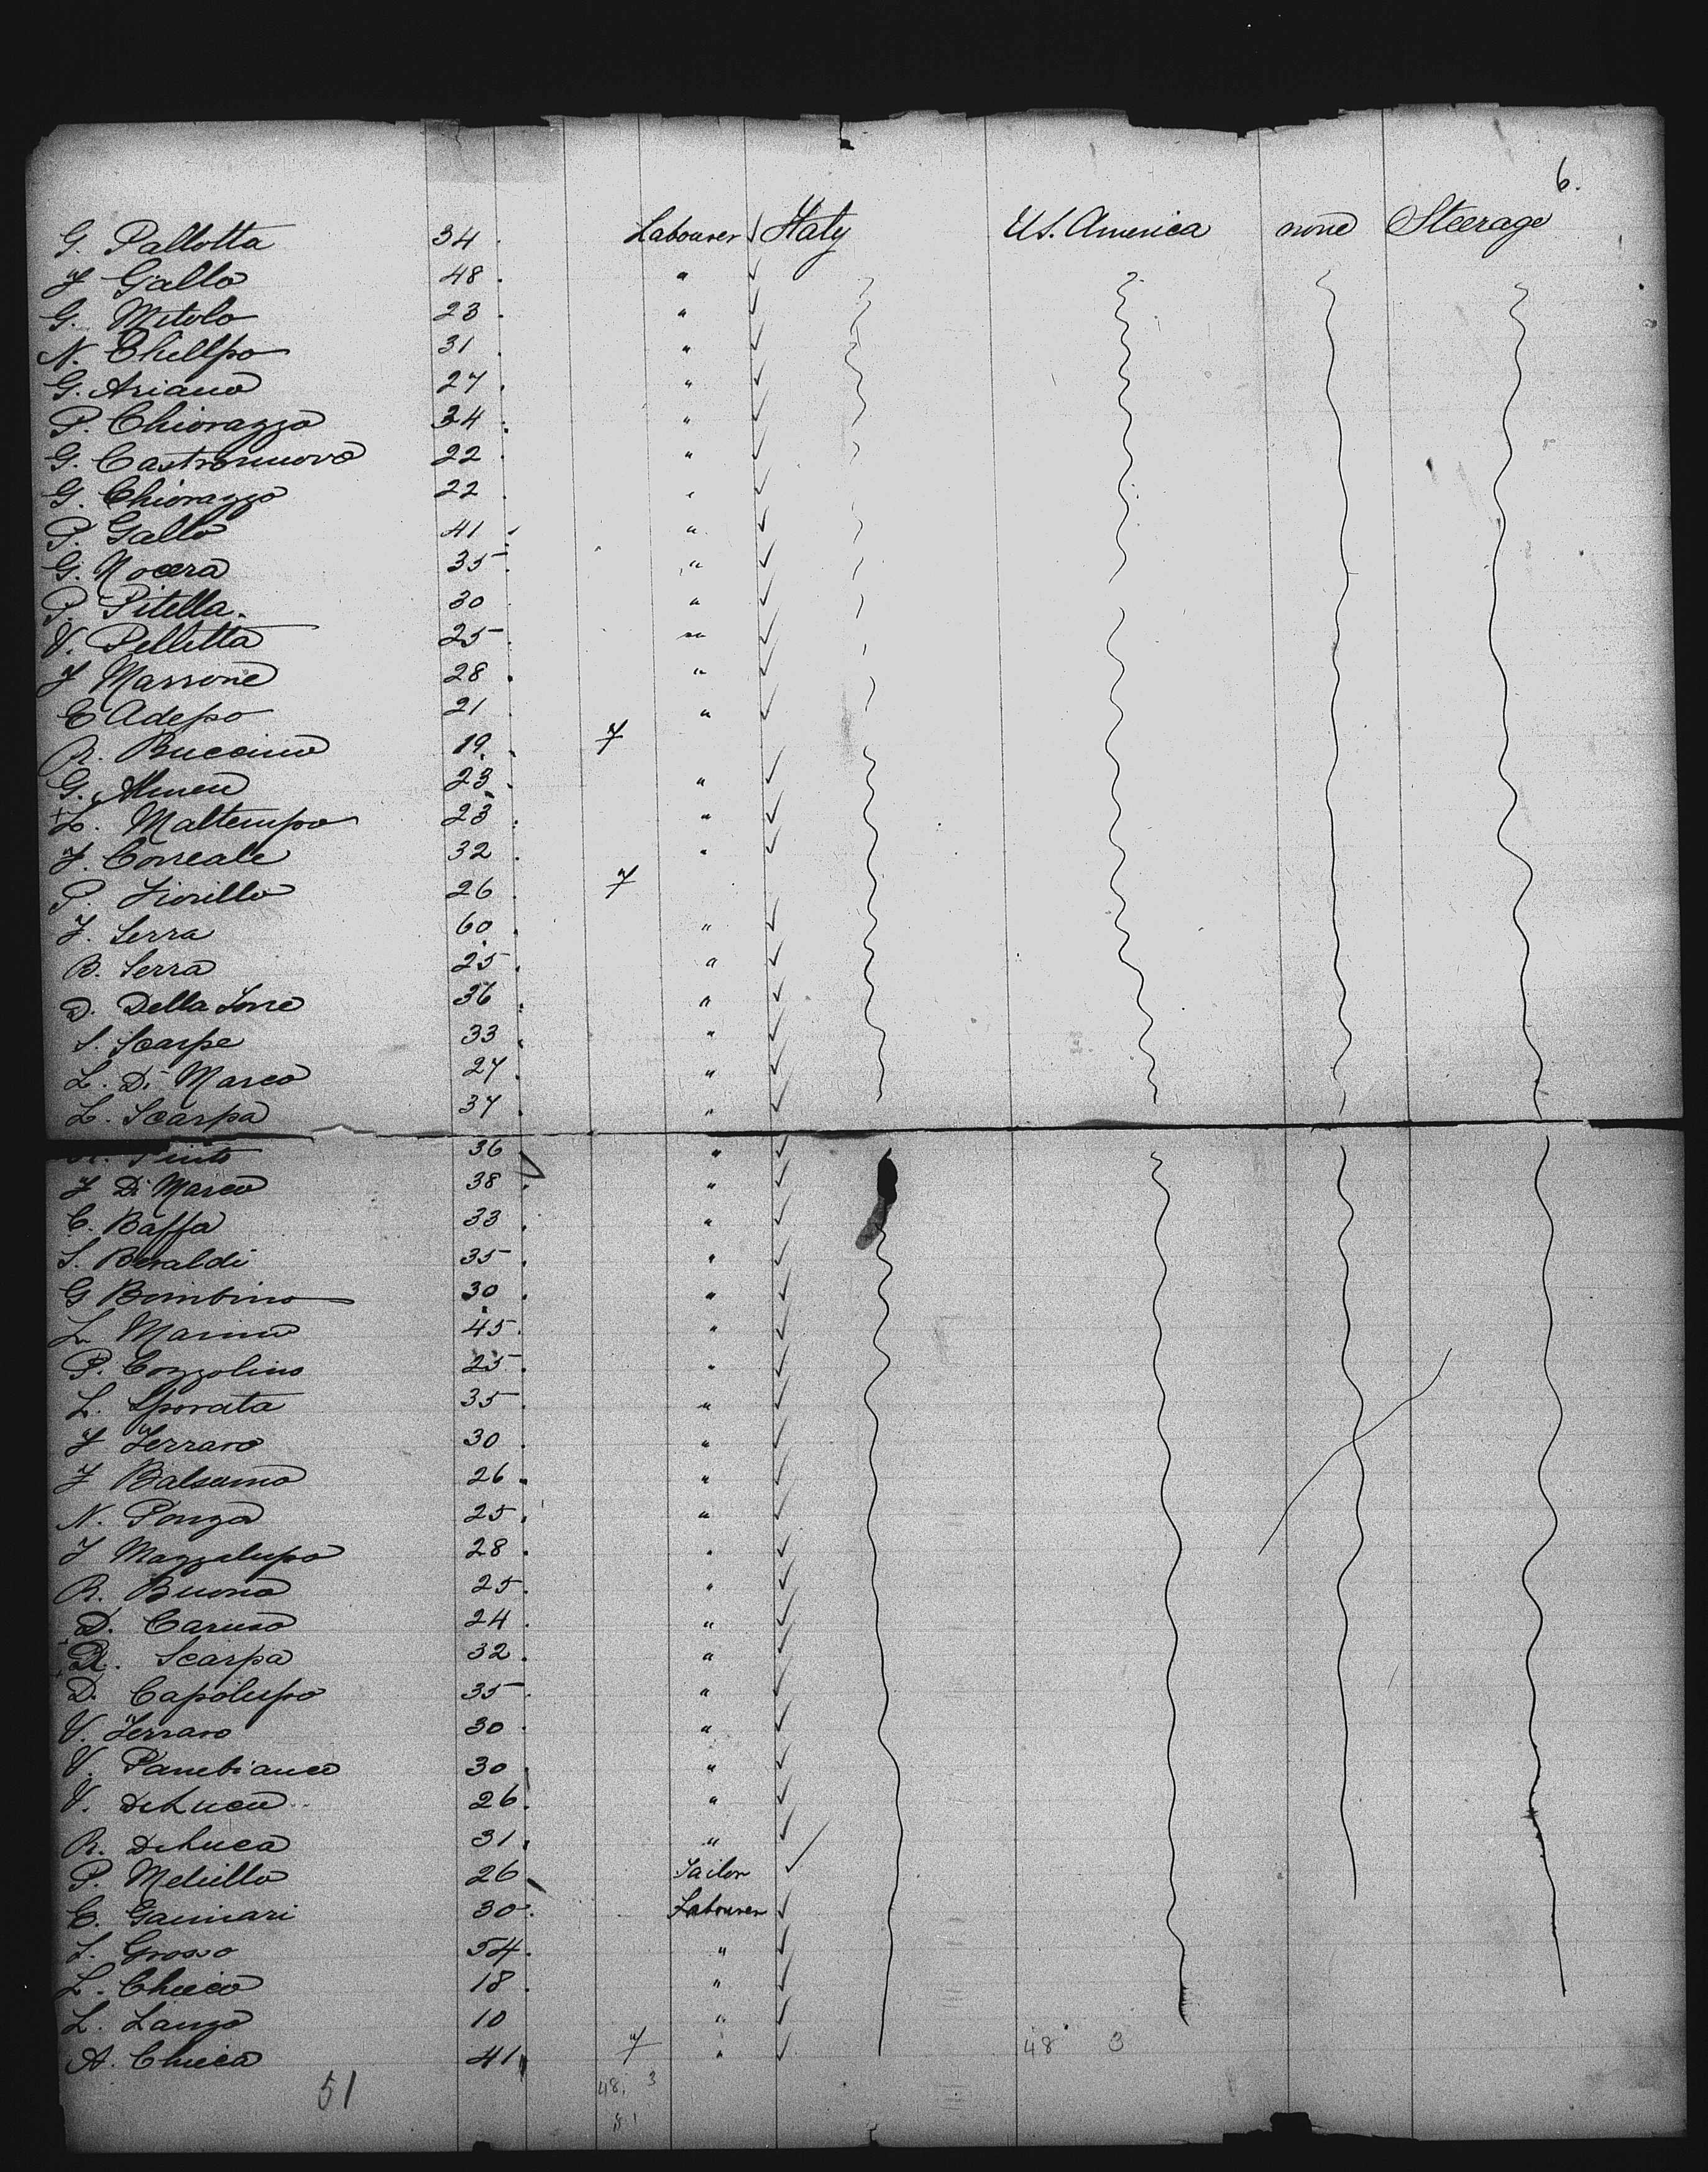 6.
G. Pallotta 34 Labourer Italy U.S. America none Steerage
F Gallo 48 "
G. Mitolo 23 "
N. 31 "
G. Ariano 27 "
P. Chiorazzo 34 "
G. Castronuovo 22 "
G. Chiorazzo 22 "
P. Gallo 41 "
G. Nocera 35 "
P. Pitella. 30 "
V. Pelletta 25 "
F Marrone 28 "
C Adesso 21 "
R. Buccino 19 F
G. 23 "
L. Maltempo 23 "
F. Correale 32 "
P. Fiorillo 26 F
F. Serra 60 "
B. Serra 25 "
D. Della Torre 36 "
S. Scarpe 33 "
L. Di Marco 27 "
L. Scarpa 37 "
Pinto 36 "
F Di Marco 38 "
C. Baffa 33 "
S. Beraldi 35 "
G Bombino 30 "
L. Marino 45 "
P. Cozzolino 25 "
L. Sporata 35 "
F Ferraro 30 "
F Balsamo 26 "
N. Ponza 25 "
F Mazzalupo 28 "
R. Buono 25 "
D. Caruso 24 "
R. Scarpa 32 "
D. Capolupo 35 "
V. Ferraro 30 "
V. Panebianco 30 "
V. DeLuca 26 "
R. DeLuca 31 "
P. Melillo 26 Tailor
C. Gaimari 30 Labourer
L. Grosso 54 "
L. Chieco 18 "
L. Lanza 10 "
A. Chieca 41 F " 48 3
51 48 3
51